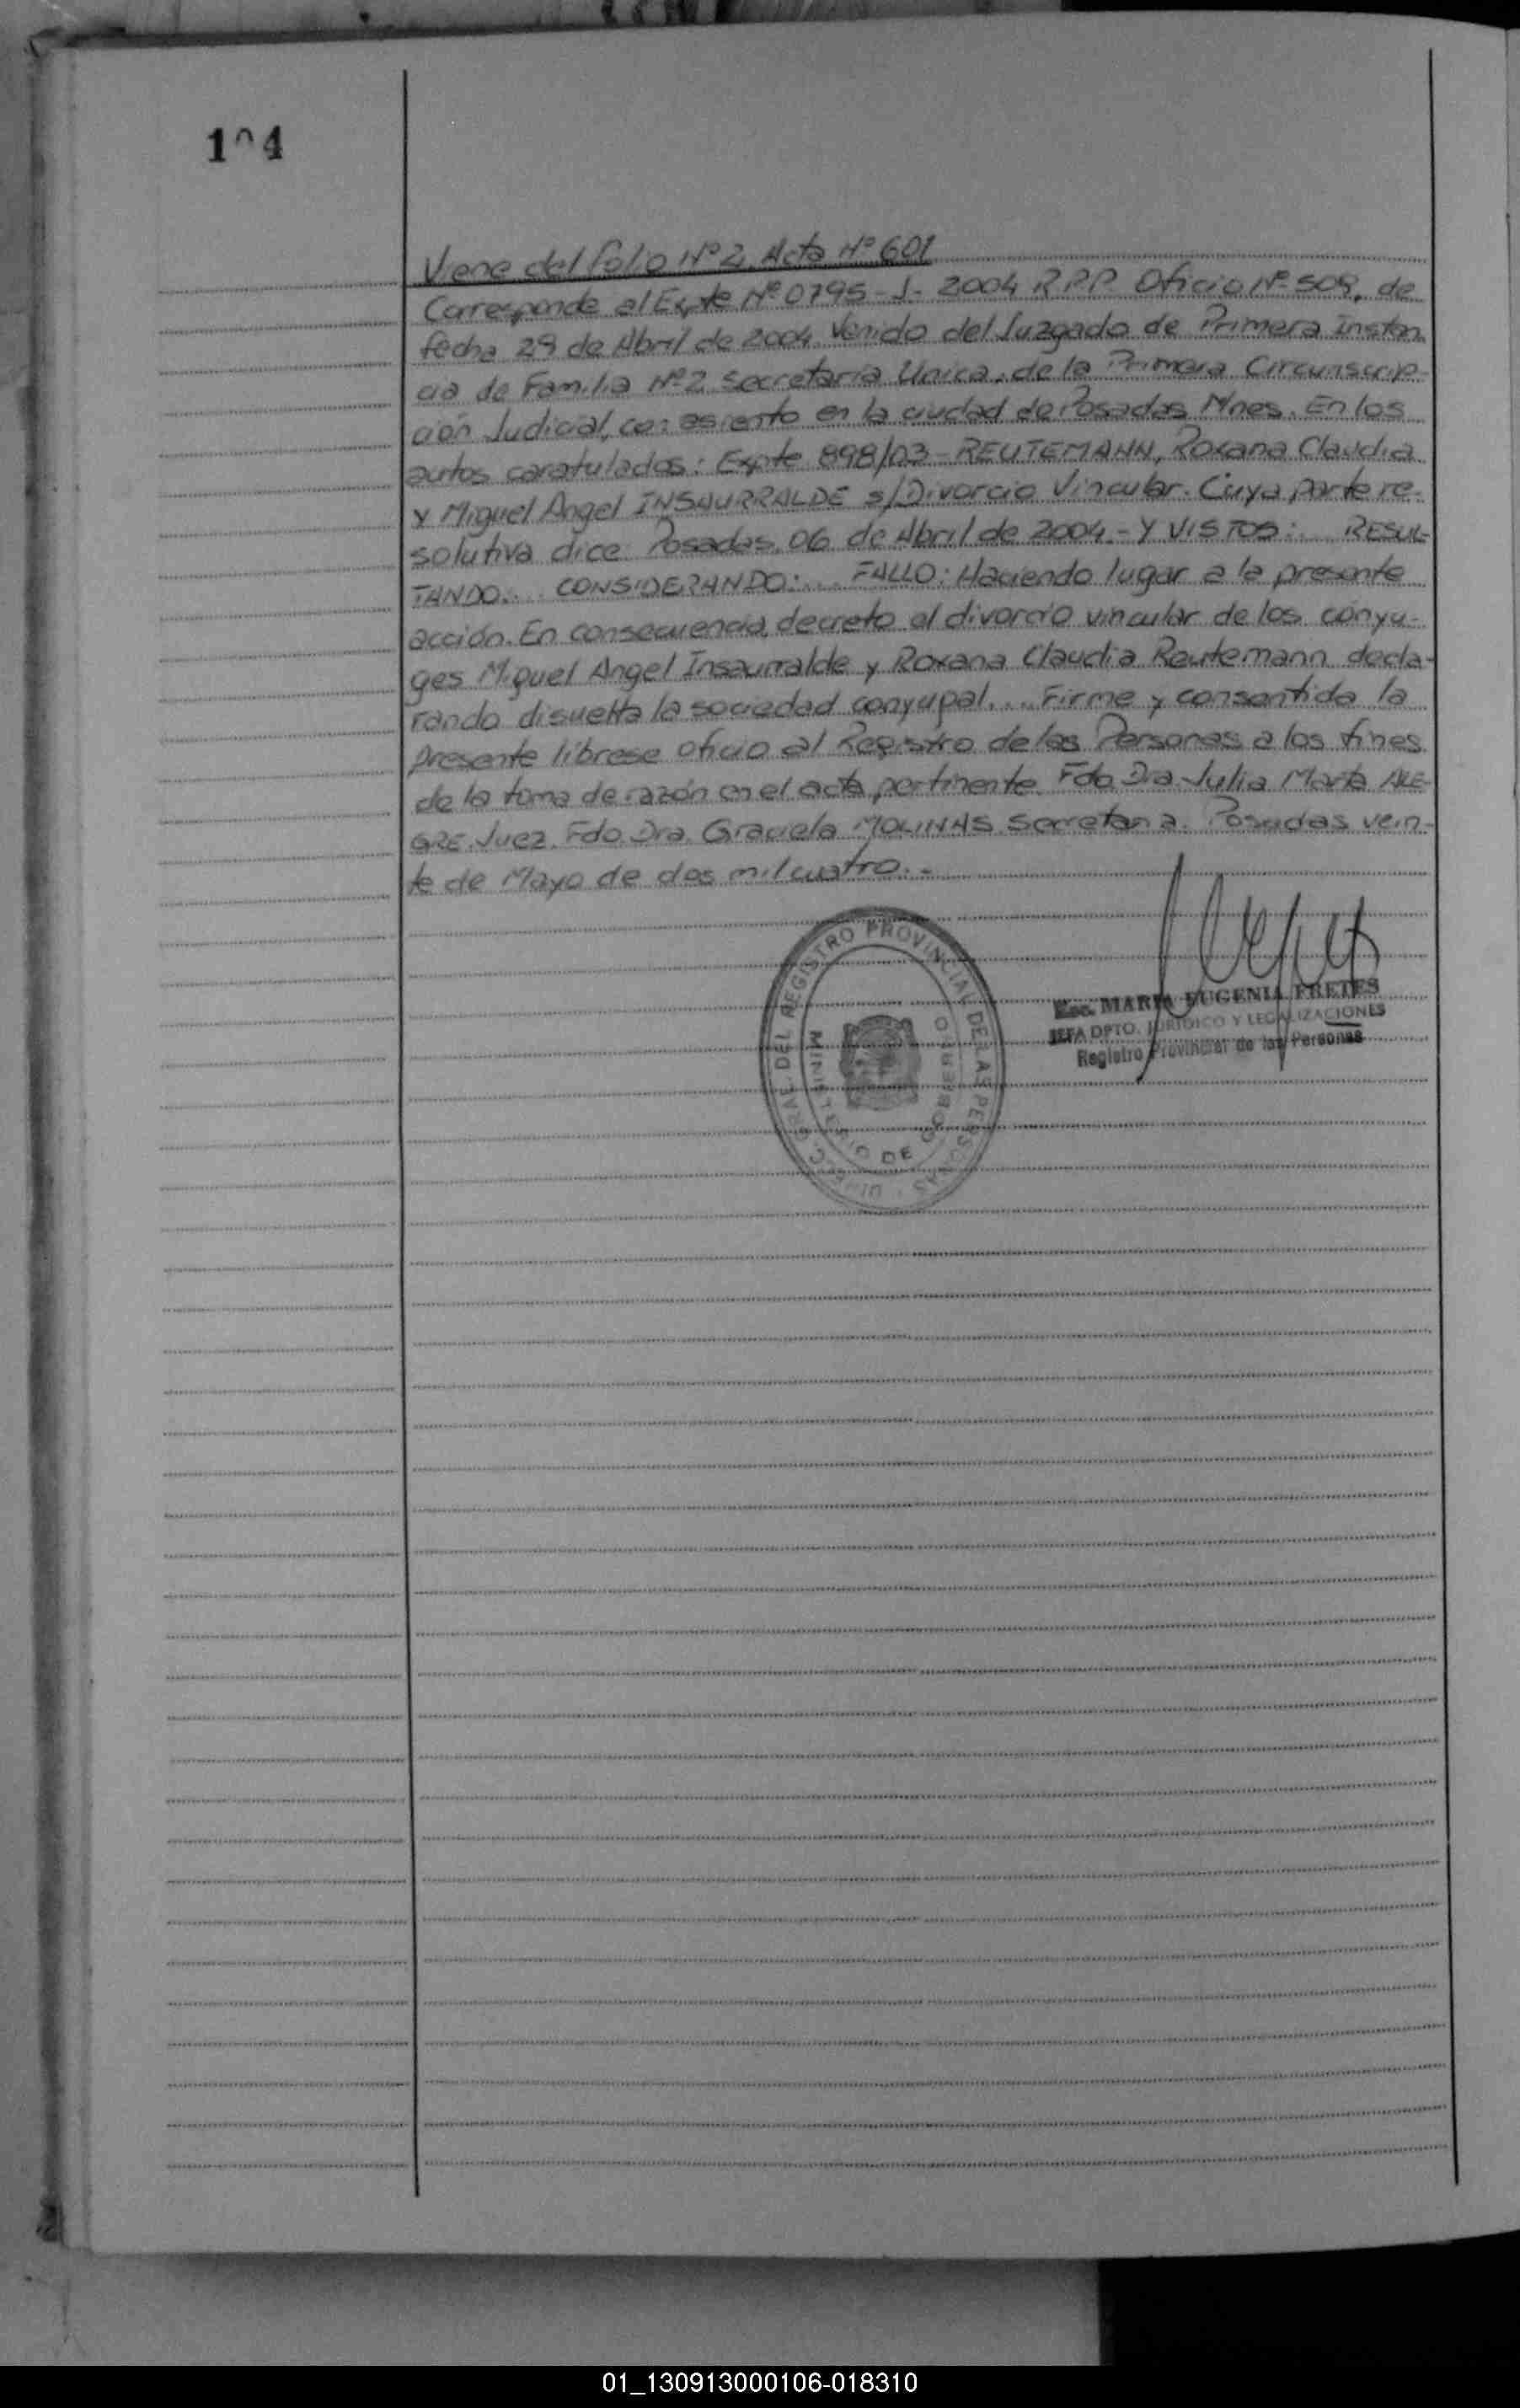 1^4
Viene del folio Nº 2. Acta Nº 601
Corresponde al Expte Nº 0795-J- 2004 R.P.P. Oficio Nº 509, de
fecha 29 de Abril de 2004. Venido del Juzgado de Primera Instan
cia de Familia Nº 2 secretaría Unica, de la Primera Circunscrip-
ción Judicial, con asiento en la ciudad de Posadas Mnes. En los
autos caratulados: Expte 898/03 - REUTEMANN, Roxana Claudia
y Miguel Angel INSAURRALDE s/Divorcio Vincular. Cuya parte re-
solutiva dice Posadas, 06 de Abril de 2004.- Y VISTOS:... RESUL-
TANDO:... CONSIDERANDO:... FALLO: Haciendo lugar a la presente
acción. En consecuencia, decreto el divorcio vincular de los cónyu-
ges Miguel Angel Insaurralde y Roxana Claudia Reutemann decla-
rando disuelta la sociedad conyugal.... Firme y consentida la
presente líbrese oficio al Registro de las Personas a los fines
de la toma de razón en el acta pertinente. Fdo. Dra. Julia Marta ALE-
GRE. Juez. Fdo. Dra. Graciela MOLINAS Secretaria. Posadas vein-
te de Mayo de dos mil cuatro.-
Esc. MARIA EUGENIA FRETES
JEFA DPTO. JURIDICO Y LEGALIZACIONES
Registro Provincial de las Personas
DIREC. GRAL. DEL REGISTRO PROVINCIAL DE LAS PERSONAS
MINISTERIO DE GOBIERNO
01_130913000106-018310